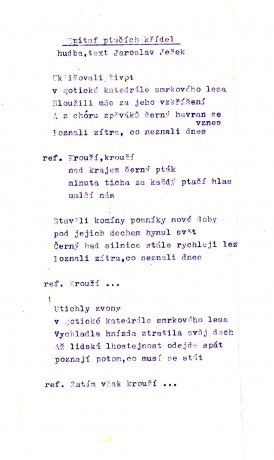 Epitaf ptačích křídel
hudba,text Jaroslav Ježek
Ukřižovali život
v gotické katedrále smrkového lesa
Sloužili mše za jeho vzkříšení
A z chóru zpěváků černý havran se
vznes
Poznali zítra, co neznali dnes
ref. Krouží,krouží
nad krajem černý pták
minuta ticha za každý ptačí hlas
umlčí nás
Stavěli komíny pomníky nové doby
pod jejich dechem hynul svět
Černý had silnice stále rychleji lez
Poznali zítra,co neznali dnes
ref. Krouží ...
Utichly zvony
v gotické katedrále smrkového lesa
Vychladla hnízda ztratila svůj dech
Až lidská lhostejnost odejde spát
poznají potom,co musí se stát
ref. Zatím však krouží ...